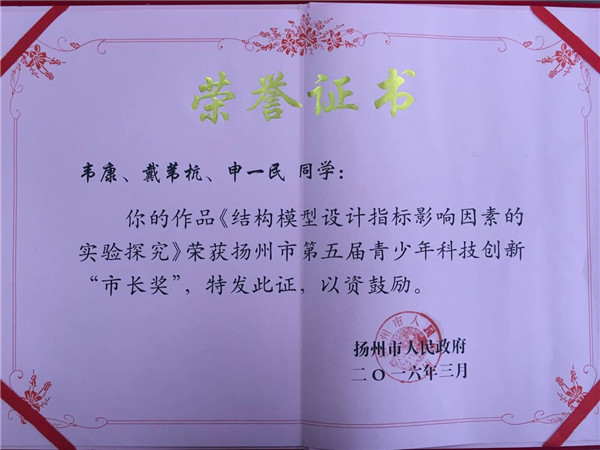 荣誉证书
韦康、戴苇杭、申一民 同学：
你的作品《结构模型设计指标影响因素的
实验探究》荣获扬州市第五届青少年科技创新
“市长奖”，特发此证，以资鼓励。
扬州市人民政府
二〇一六年三月